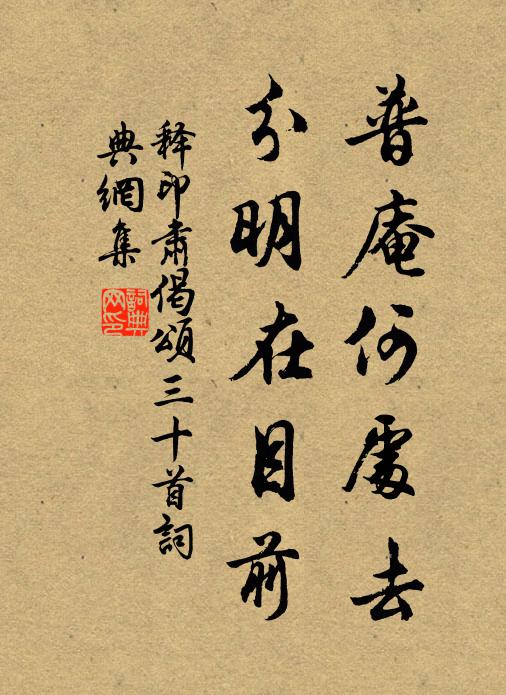 普庵何處去
分明在目前
释印肃偈頌三十首詞
典網集
詞典
网印